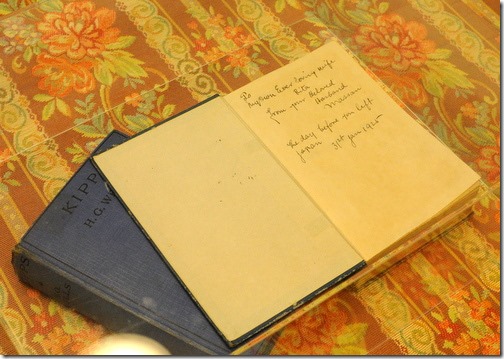 To
My Own Ever loving wife
Rita
From your beloved
husband
Massan
The day before you left
Japan 31st Jan 1925
KIPP
H.G. W